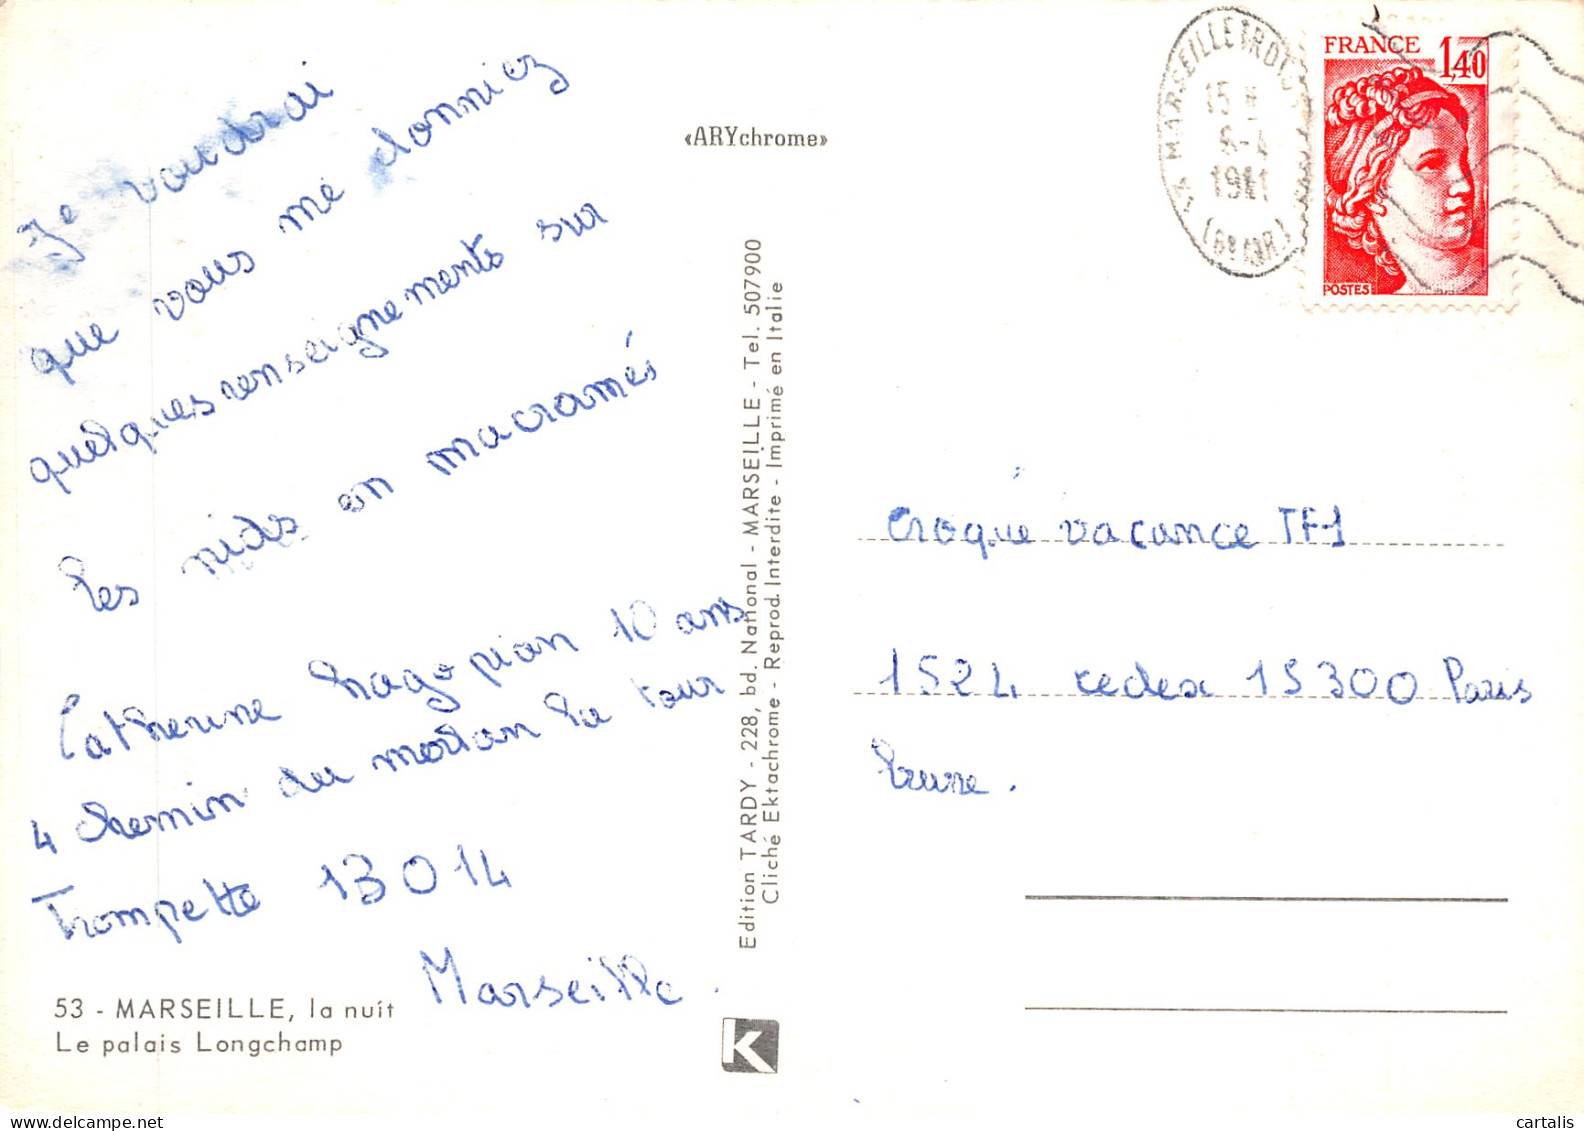 Je voudrai
que vous me donniez
quelques renseignements sur
les nids en macramés
Catherine hagopian 10 ans
4 chemin du moulan la tour
Trompette 13014
Marseille.
53 - MARSEILLE, la nuit
Le palais Longchamp
«ARYchrome»
Edition TARDY - 228, bd. National - MARSEILLE - Tel. 507900
Cliché Ektachrome - Reprod. Interdite - Imprimé en Italie
K
MARSEILLE
15
1981
FRANCE
1,40
POSTES
Croque vacance TF1
1524 cedex 15300 Paris
brune.
cartalis